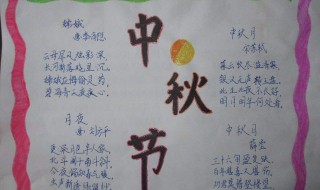 中
秋
节
嫦娥
唐李商隐
云母屏风烛影深
长河渐落晓星沉
嫦娥应悔偷灵药
碧海青天夜夜心
月夜
唐 刘方平
更深月色半人家
北斗阑干南斗斜
今夜偏知春气暖
虫声新透绿窗纱
中秋月
宋苏轼
暮云收尽溢清寒
银汉无声转玉盘
此生此夜不长好
明月明年何处看
中秋月
薛莹
三十六旬盈复缺